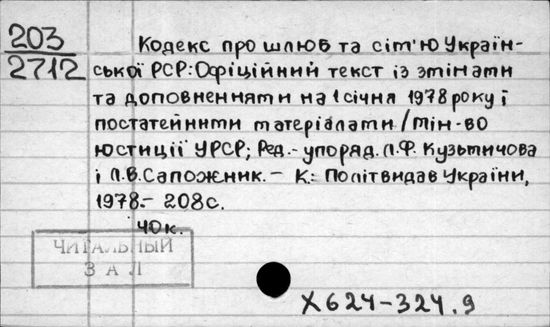 203
2712
Кодекс про шлюб та сім'ю Україн-
ської РСР: Офіційний текст із змінами
та доповненнями на 1 січня 1978 року і
постатейними матеріалами / Мін-во
юстиції УРСР; Ред.-упоряд. Л.Ф. Кузьмичова
і Л.В. Сапожник. – К.: Політвидав України,
1978. – 208 с.
40 к.
ЧИТАЛЬНЫЙ
ЗАЛ
Х624-324.9